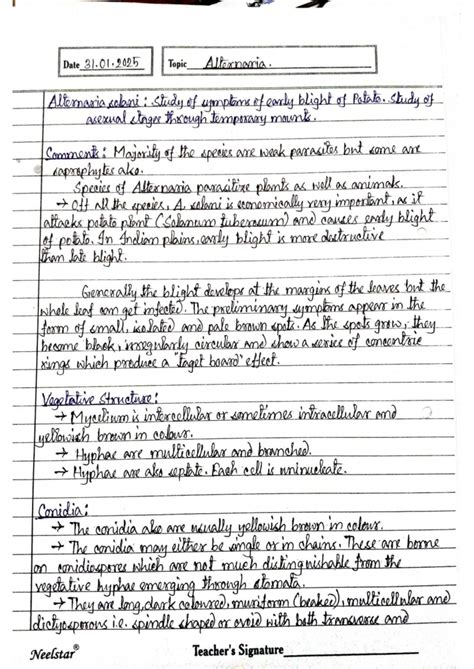 Date 31.01.2025 Topic Alternaria.
Alternaria solani : Study of symptoms of early blight of Potato. Study of
asexual stages through temporary mounts.
Comments : Majority of the species are weak parasites but some are
saprophytes also.
Species of Alternaria parasitize plants as well as animals.
→ Off all the species, A. solani is economically very important, as it
attacks potato plant (Solanum tuberosum) and causes early blight
of potato. In Indian plains, early blight is more destructive
than late blight.
Generally the blight develops at the margins of the leaves but the
whole leaf can get infected. The preliminary symptoms appear in the
form of small, isolated and pale brown spots. As the spots grow, they
become black, irregularly circular and show a series of concentric
rings which produce a "taget board" effect.
Vegetative Structure :
→ Mycelium is intercellular or sometimes intracellular and
yellowish brown in colour.
→ Hyphae are multicellular and branched.
→ Hyphae are also septate. Each cell is uninucleate.
Conidia :
→ The conidia also are usually yellowish brown in colour.
→ The conidia may either be single or in chains. These are borne
on conidiospores which are not much distinguishable from the
vegetative hyphae emerging through stomata.
→ They are long, dark coloured, muriform (beaked), multicellular and
dictyosporous i.e. spindle shaped or ovoid with both transverse and
Neelstar® Teacher's Signature